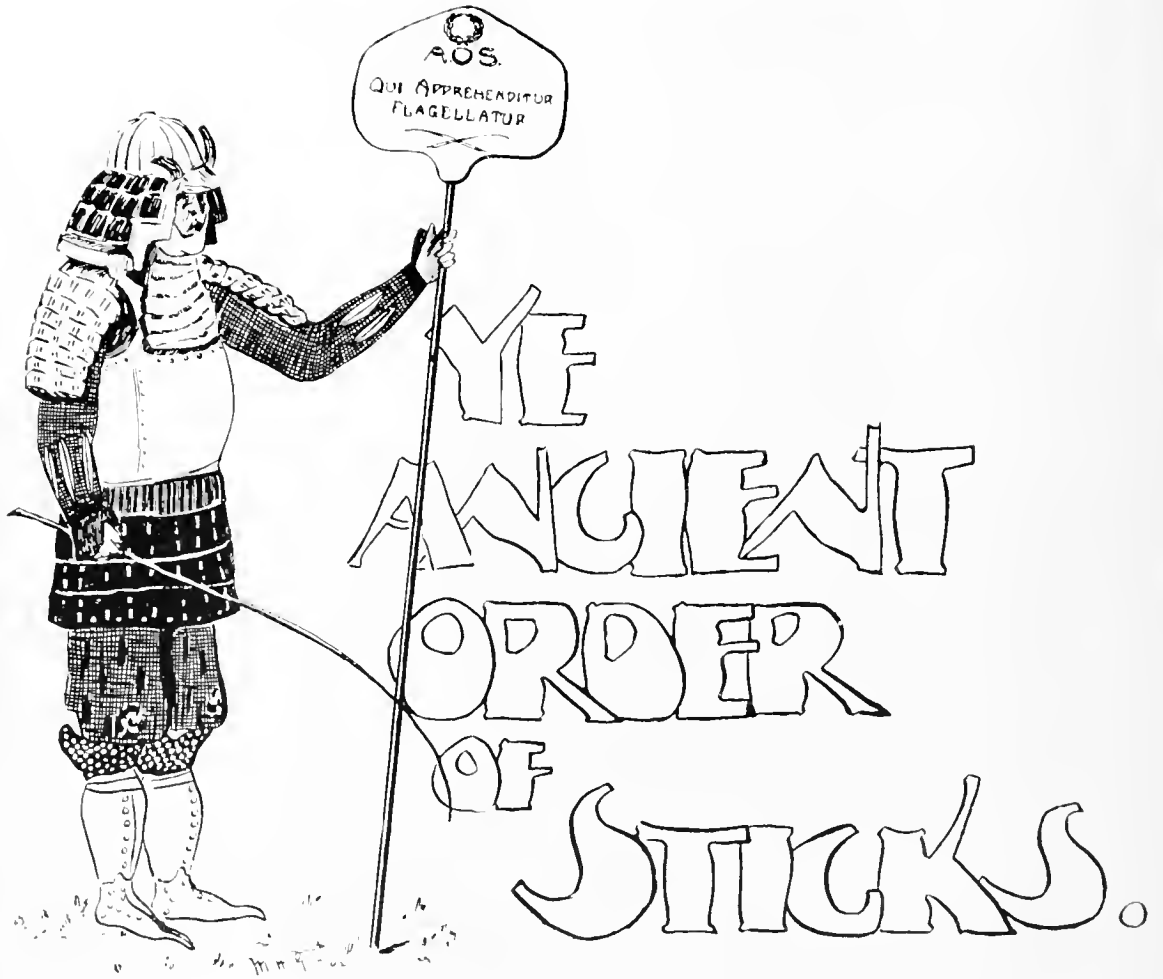 A.O.S.
QUI APPREHENDITUR
FLAGELLATUR
YE
ANCIENT
ORDER
OF
STICKS.